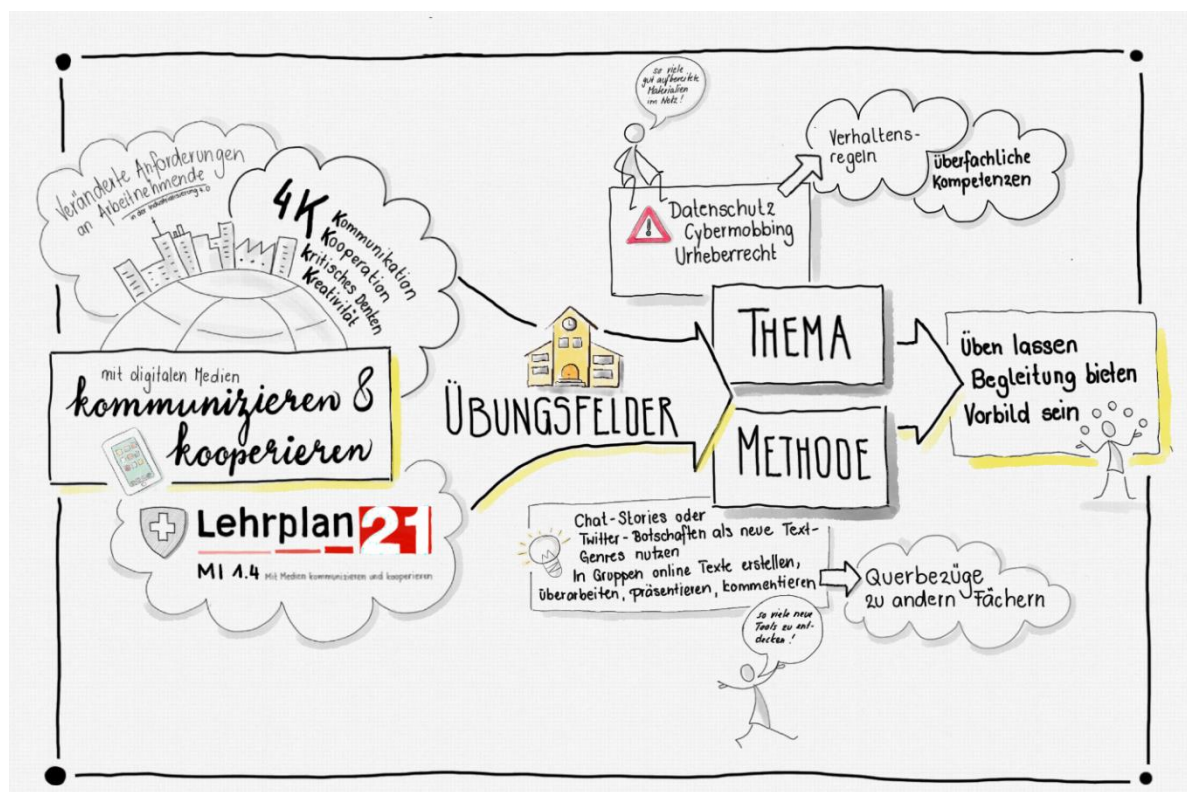 Veränderte Anforderungen
an Arbeitnehmende
in der Industrialisierung 4.0
4K
Kommunikation
Kooperation
kritisches Denken
Kreativität
mit digitalen Medien
kommunizieren &
kooperieren
Lehrplan 21
MI 1.4 Mit Medien kommunizieren und kooperieren
ÜBUNGSFELDER
so viele
gut aufbereitete
Materialien
im Netz!
Datenschutz
Cybermobbing
Urheberrecht
Verhaltens-
regeln
überfachliche
Kompetenzen
THEMA
METHODE
Chat-Stories oder
Twitter-Botschaften als neue Text-
Genres nutzen
In Gruppen online Texte erstellen,
überarbeiten, präsentieren, kommentieren
Querbezüge
zu andern Fächern
so viele neue
Tools zu ent-
decken!
Üben lassen
Begleitung bieten
Vorbild sein